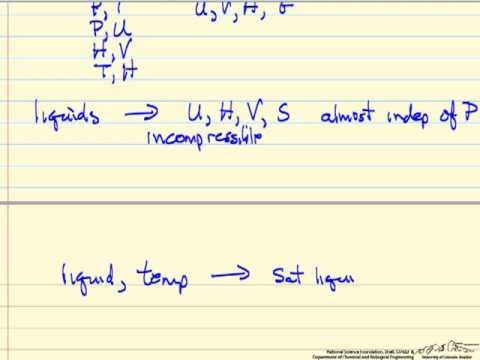 P, T U, V, H,
P, U
H, V
T, H
liquids → U, H, V, S almost indep of P
incompressible
liquid, temp → Sat liqui
National Science Foundation,
Department of Chemical and Biological Engineering University of Colorado Boulder